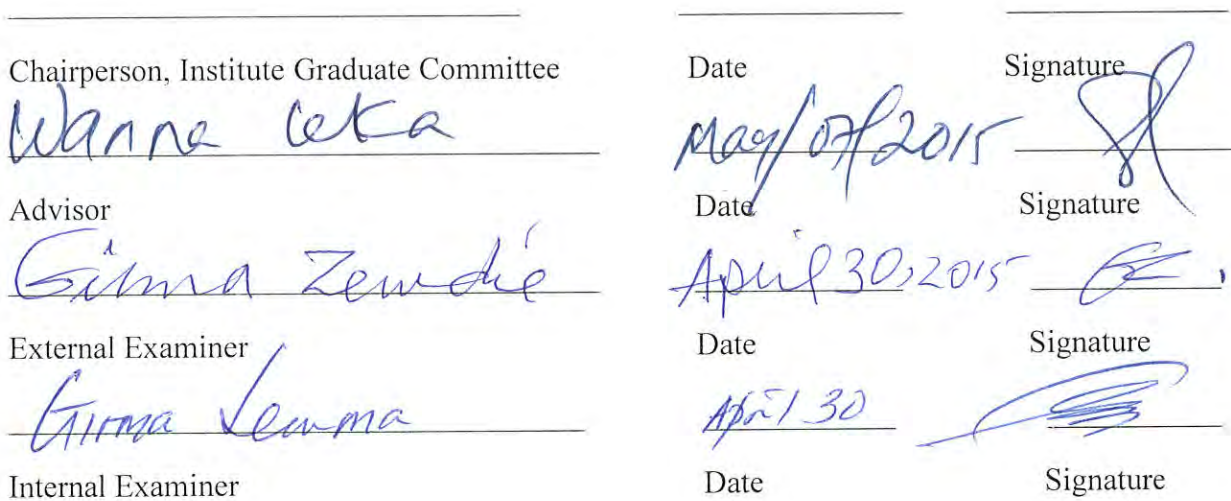 Chairperson, Institute Graduate Committee Date Signature
Wanna Leka May/07/2015
Advisor Date Signature
Girma Zewdie April 30, 2015
External Examiner Date Signature
Girma Lemma April 30
Internal Examiner Date Signature